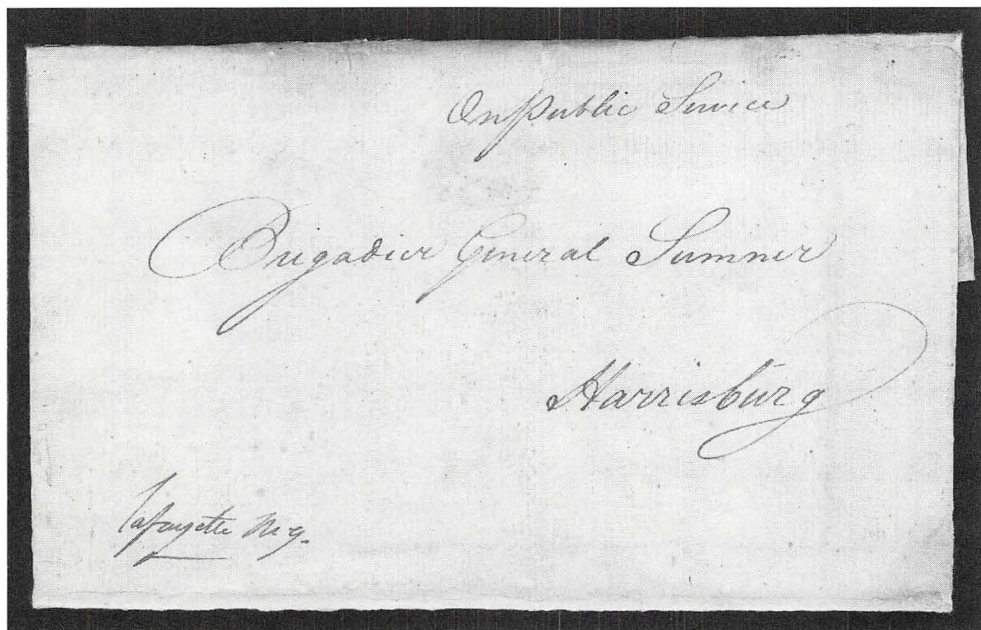 On Public Service
Brigadier General Sumner
Harrisburg
Lafayette M.g.